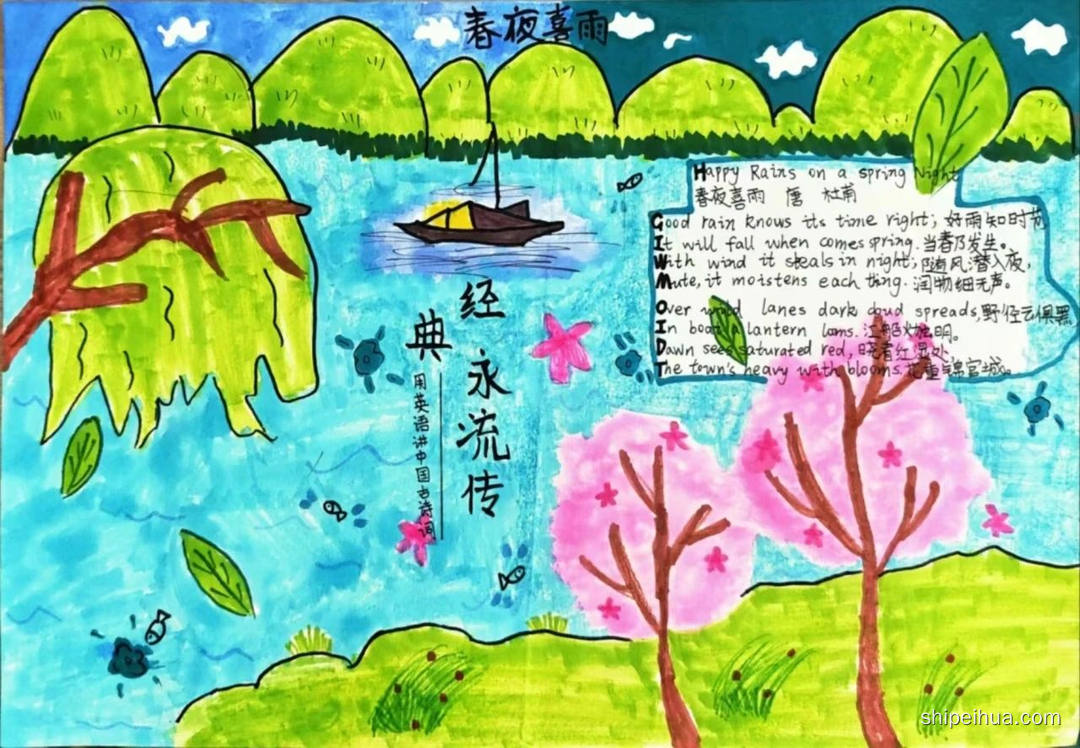 春夜喜雨
Happy Rains on a spring Night
春夜喜雨 唐 杜甫
Good rain knows its time right; 好雨知时节
It will fall when comes spring. 当春乃发生。
With wind it steals in night; 随风潜入夜，
Mute, it moistens each thing. 润物细无声。
Over wild lanes dark cloud spreads, 野径云俱黑
In boat a lantern looms. 江船火独明。
Dawn sees saturated red, 晓看红湿处
The town's heavy with blooms. 花重锦官城。
经典永流传
用英语讲中国古诗词
shipeihua.com